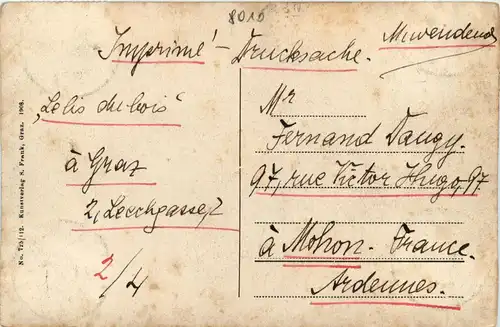 8010
Imprimé - Drucksache.
"Lelis dubois"
à Graz
2, Leechgasse, 2
2/4
Mr
Fernand Daugy.
97, rue Victor Hugo, 97
à Mohon. France.
Ardennes.
No. 725/112. Kunstverlag S. Frank, Graz. 1908.